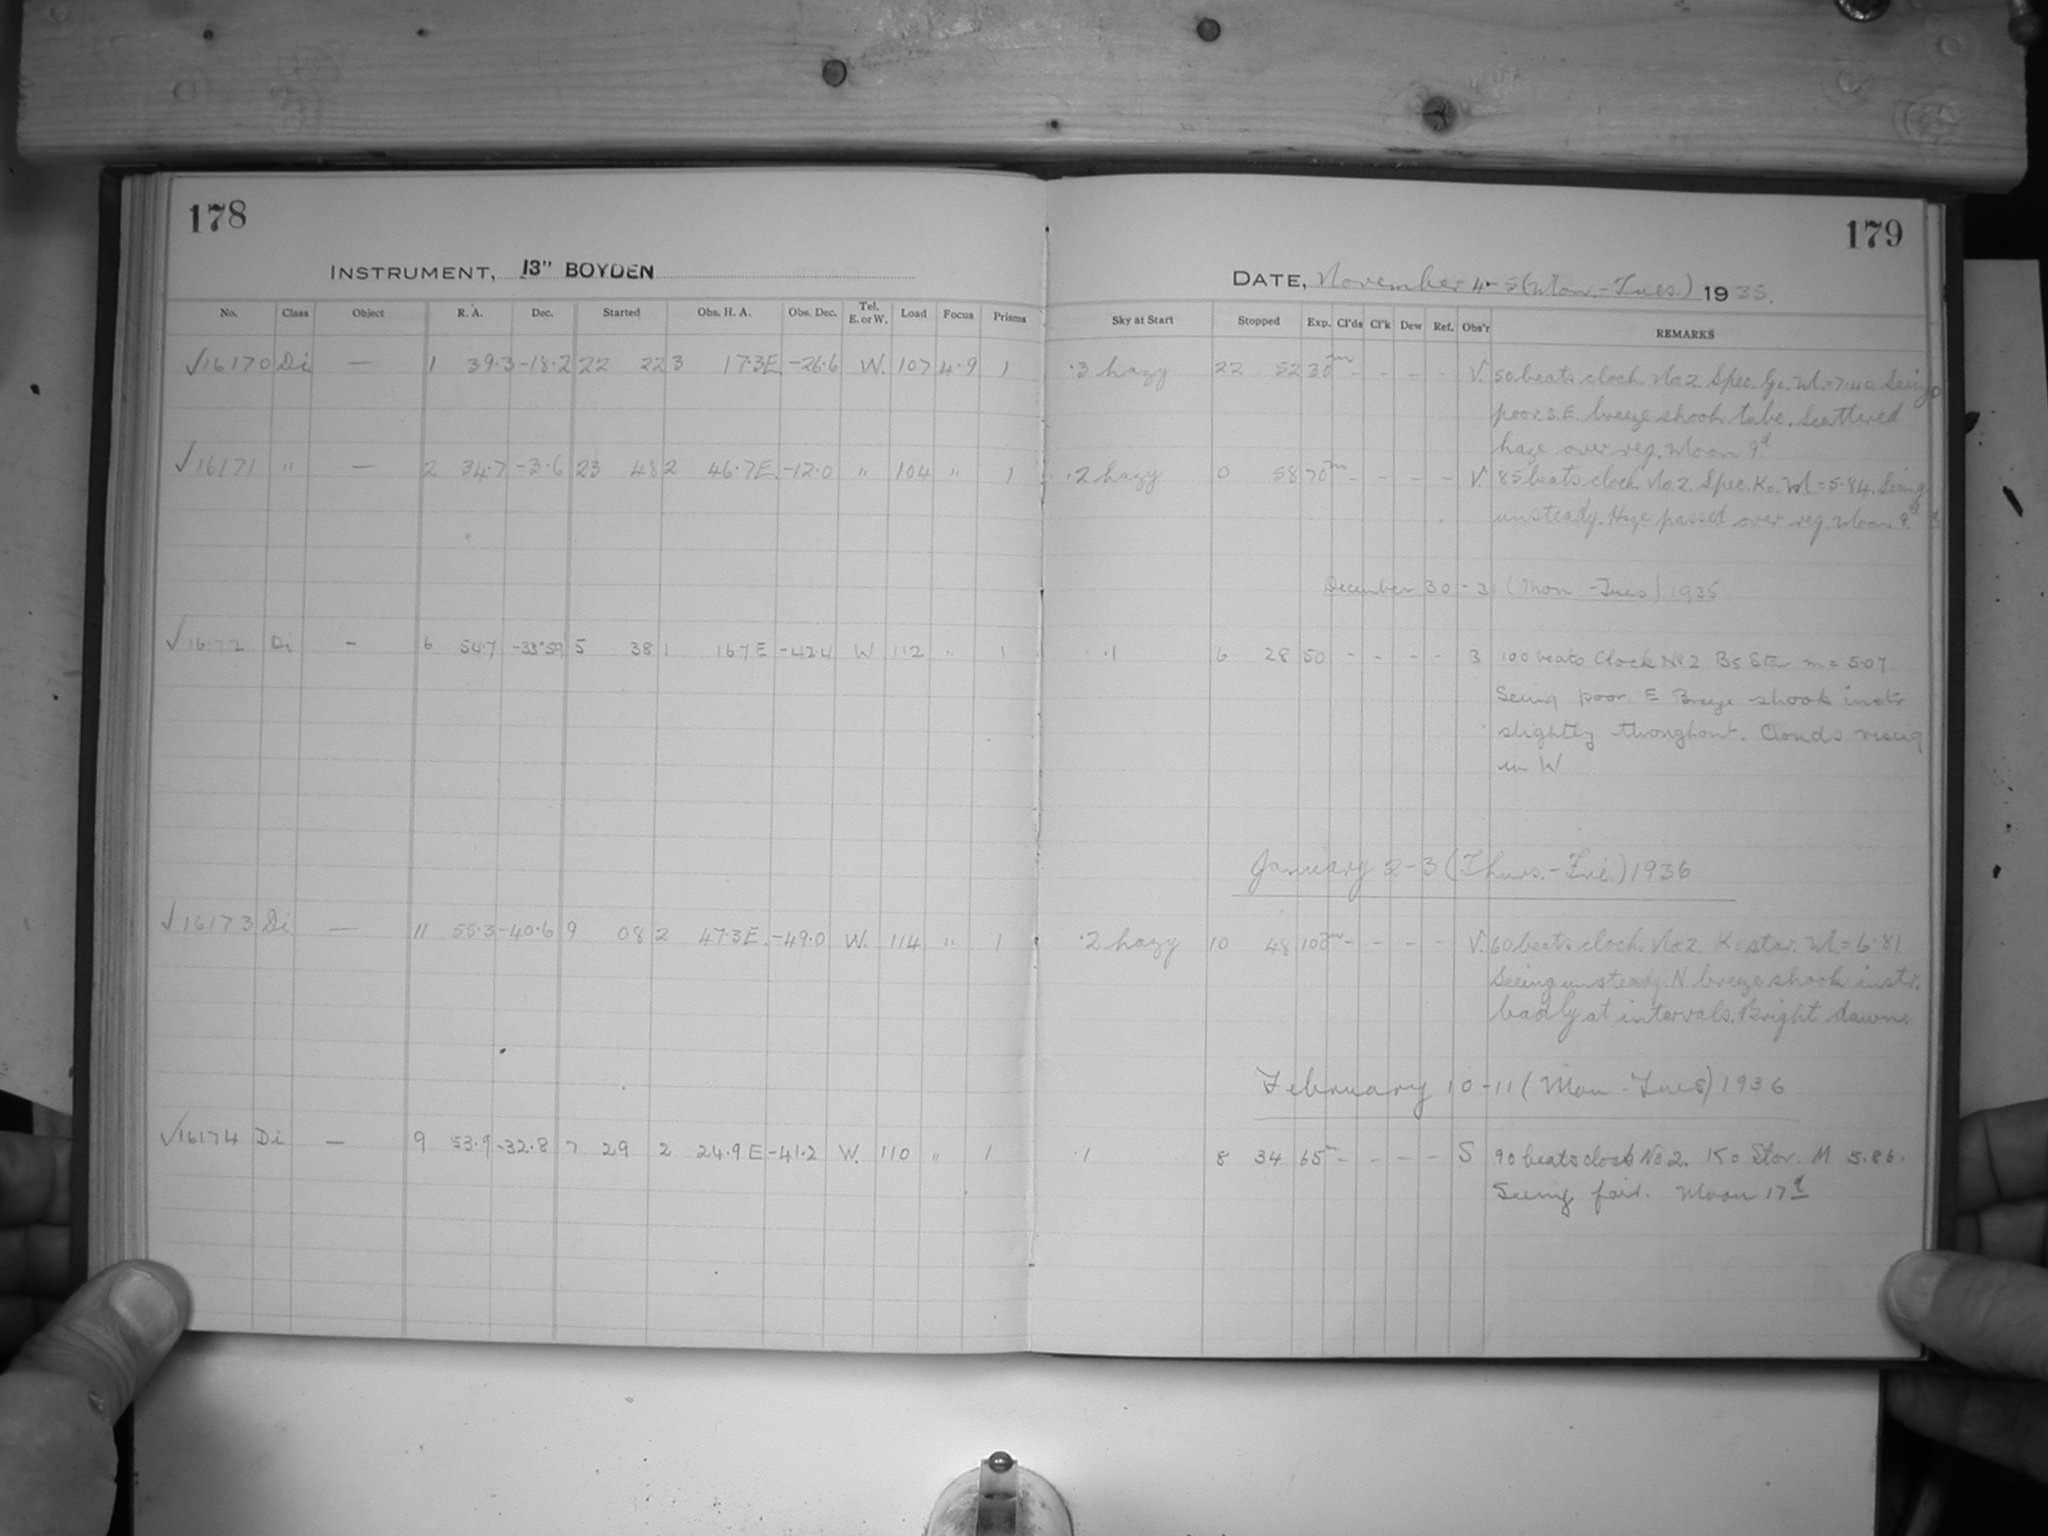 178
179
INSTRUMENT, 13" BOYDEN
DATE, November 4-5 (Mon.-Tues.) 1935.
No. Class Object R. A. Dec. Started Obs. H. A. Obs. Dec. Tel. E. or W. Load Focus Prisms Sky at Start Stopped Exp. Cl'ds Cl'k Dew Ref. Obs'r REMARKS
√16170 Di — 1 39.3 -18.2 22 22 3 17.3E. -26.6 W. 107 4.9 1 .3 hazy 22 52 30m - - - - V. 50 beats clock No2 Spec. Go. M.=7.40 Seeing
poor. S.E. breeze shook tube. Scattered
haze over reg. Moon 9d
√16171 " — 2 34.7 -3.6 23 48 2 46.7E. -12.0 " 104 " 1 .2 hazy 0 58 70m - - - - V. 85 beats clock No.2. Spec. Ko. M.=5.84. Seeing
unsteady. Haze passed over reg. Moon 9.d
December 30-31 (Mon-Tues) 1935
√16172 Di - 6 54.7 -33°59 5 38 1 16.7E -42.4 W 112 " 1 .1 6 28 50 - - - - 3 100 beats Clock No2 B5 Star m= 5.07
Seeing poor. E Breeze shook instr
slightly throughout. Clouds rising
in W
January 2-3 (Thurs.-Fri.) 1936
√16173 Di — 11 55.3 -40.6 9 08 2 47.3E. -49.0 W. 114 " 1 .2 hazy 10 48 100m - - - - V. 60 beats clock No2. Ko star. M.=6.81
Seeing unsteady. N breeze shook instr.
badly at intervals. Bright dawn.
February 10-11 (Mon-Tues) 1936
√16174 Di — 9 53.9 -32.8 7 29 2 24.9E -41.2 W. 110 " 1 .1 8 34 65m - - - - S 90 beats clock No2. Ko Star. M 5.86.
Seeing fair. Moon 17d